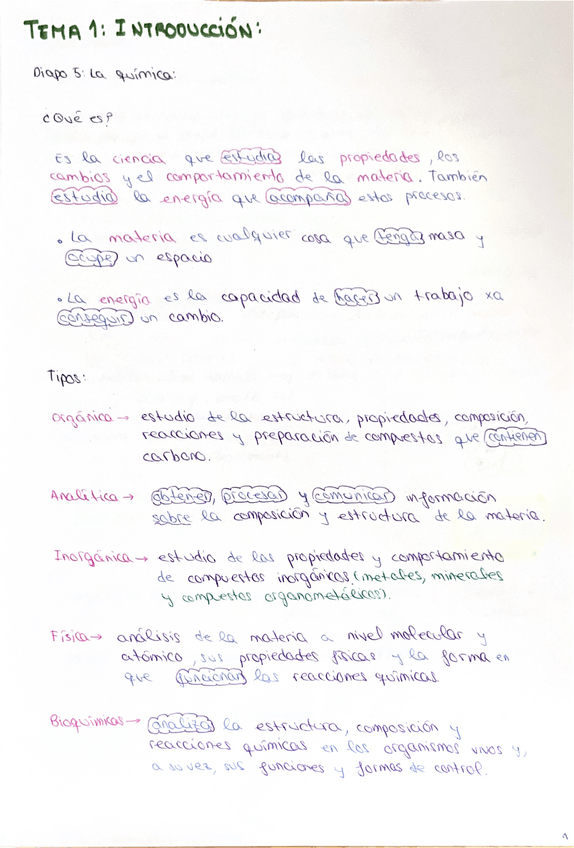 TEMA 1: INTRODUCCIÓN:
Diapo 5: La química:
¿Qué es?
Es la ciencia que estudia las propiedades, los
cambios y el comportamiento de la materia. También
estudia la energía que acompaña estos procesos.
• La materia es cualquier cosa que tenga masa y
ocupe un espacio
• La energía es la capacidad de hacer un trabajo xa
conseguir un cambio.
Tipos:
Orgánica → estudio de la estructura, propiedades, composición,
reacciones y preparación de compuestos que contienen
carbono.
Analítica → obtener, procesar y comunicar información
sobre la composición y estructura de la materia.
Inorgánica → estudio de las propiedades y comportamiento
de compuestos inorgánicos (metales, minerales
y compuestos organometálicos).
Física → análisis de la materia a nivel molecular y
atómico, sus propiedades físicas y la forma en
que funcionan las reacciones químicas
Bioquímicas → analiza la estructura, composición y
reacciones químicas en los organismos vivos y,
a su vez, sus funciones y formas de control.
1